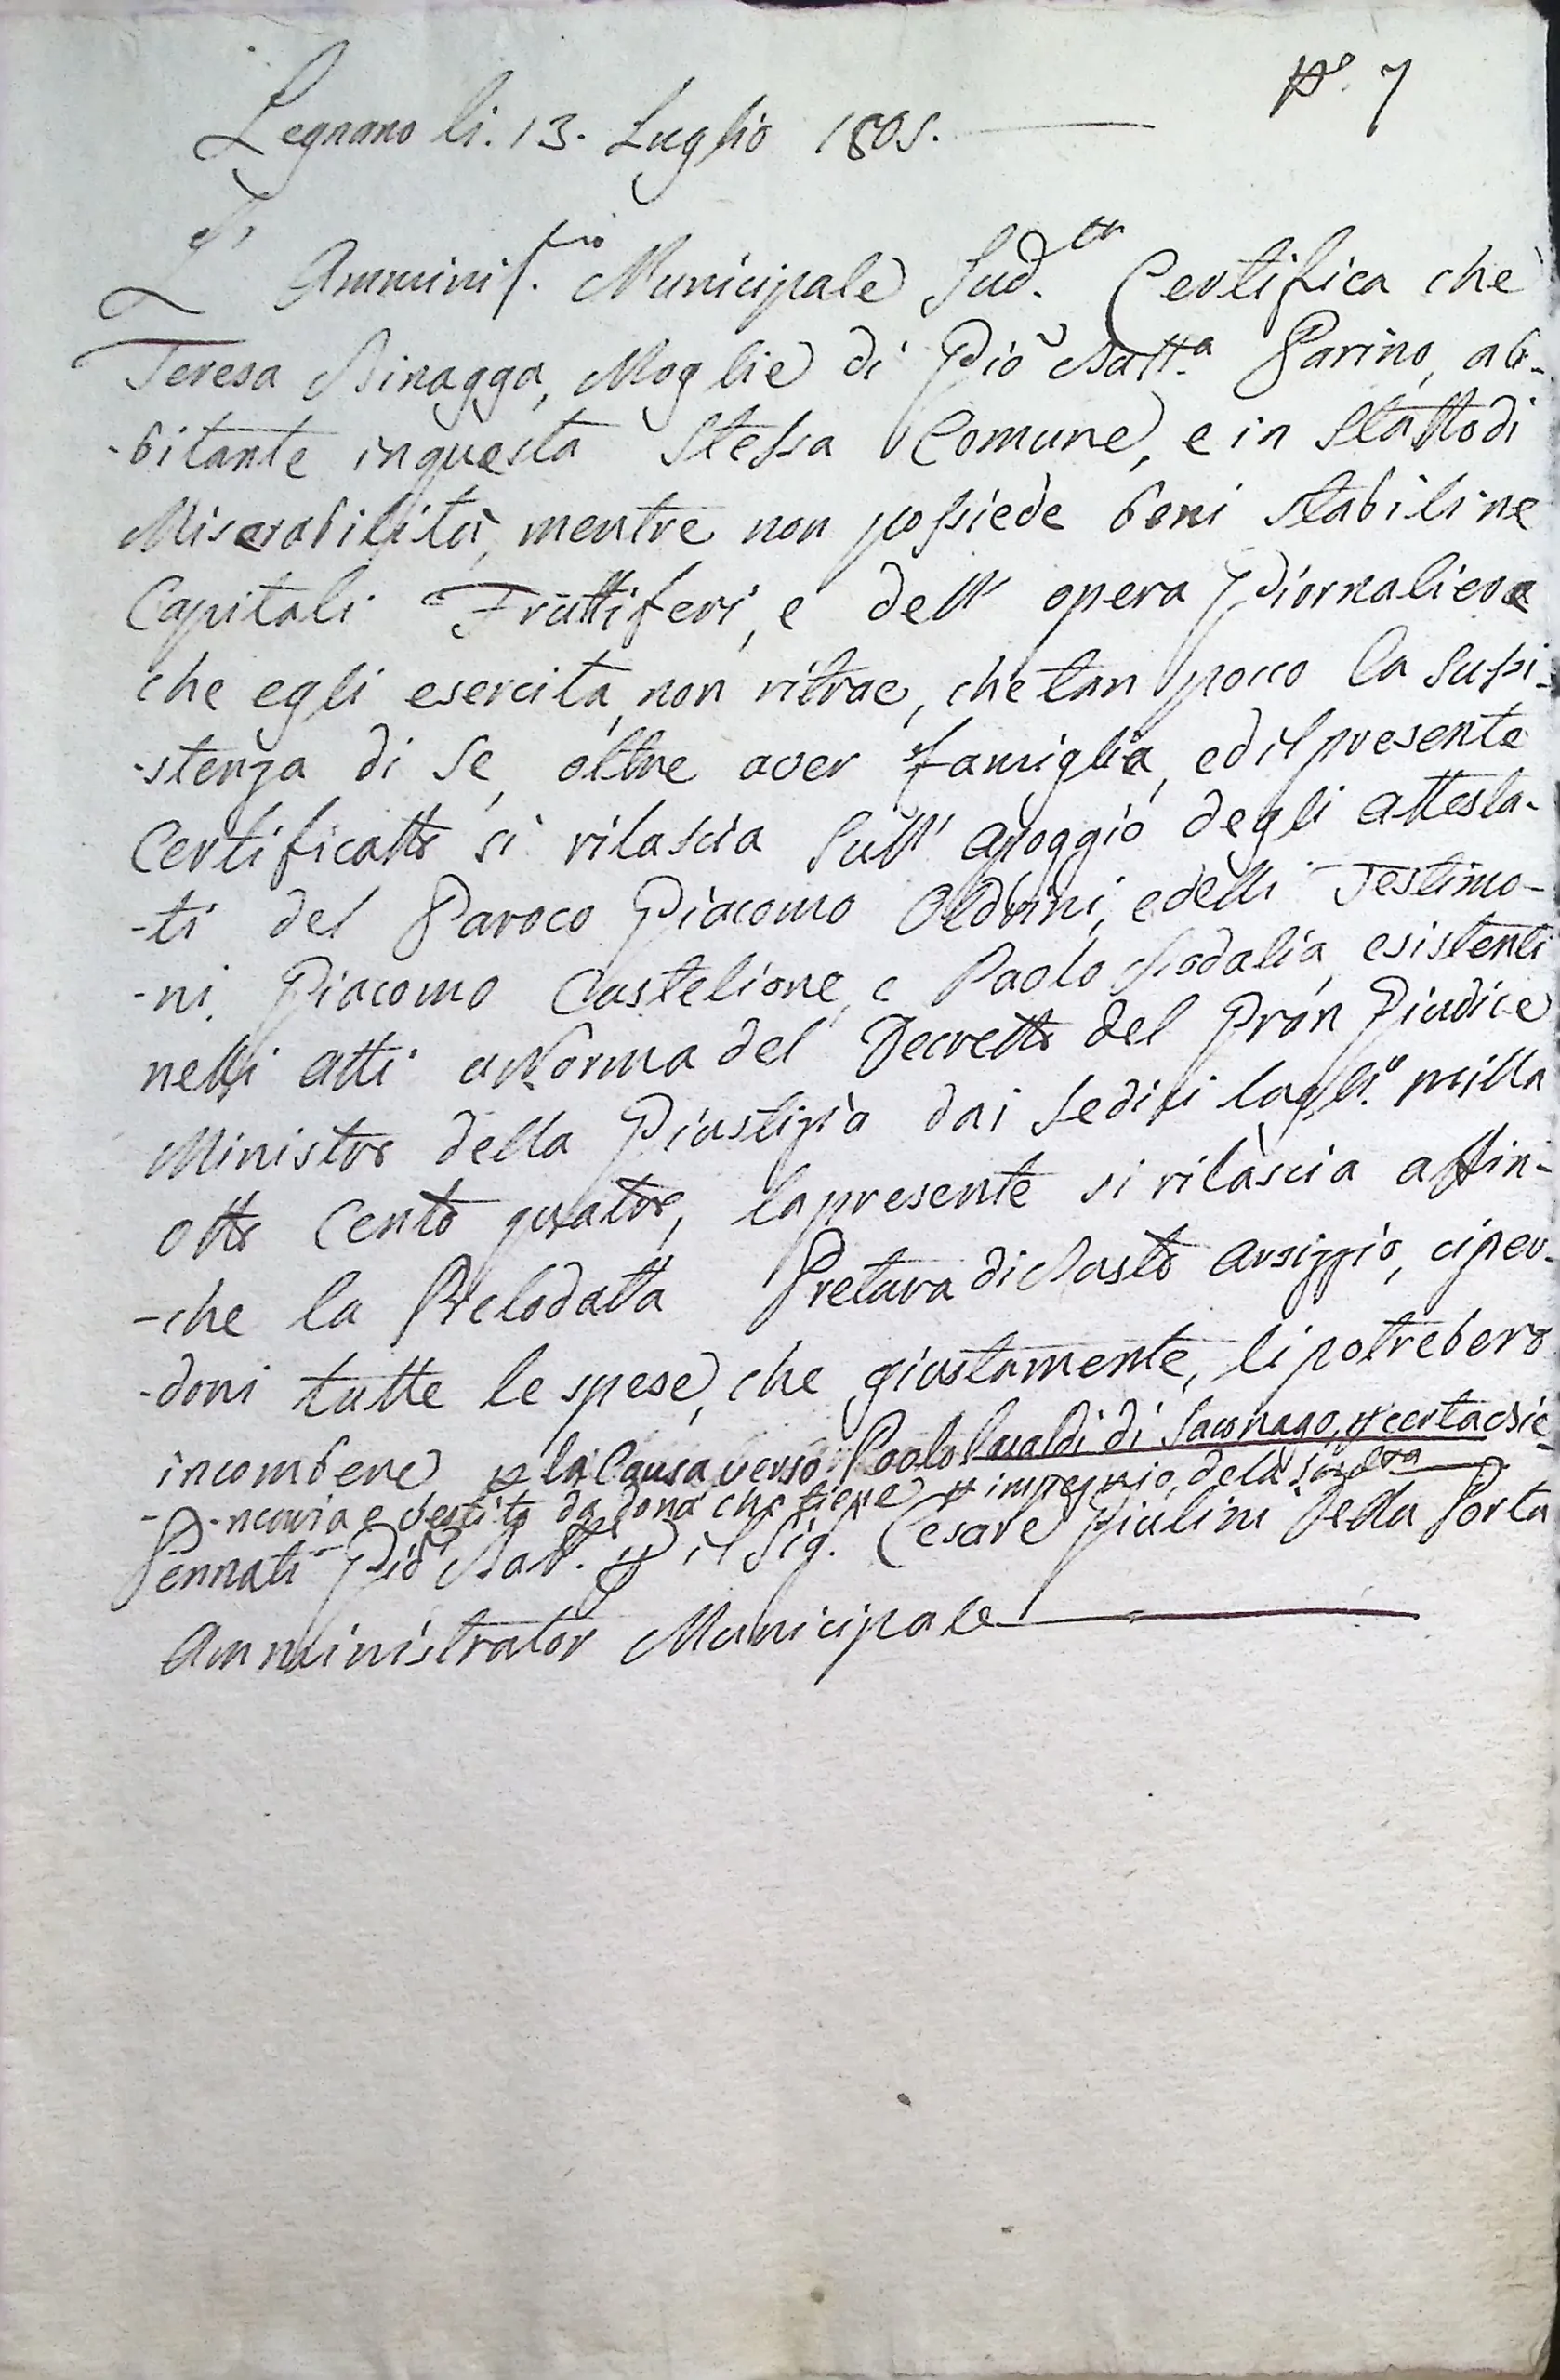 N.º 7
Legnano li. 13. Luglio 1805.
L' Amminis.cio Municipale Sud.ta Certifica che
Teresa Binagga, Moglie di Gio Batt.a Parino, ab-
-bitante in questa Stessa Comune, e in Statto di
Miserabilità, mentre non possiede beni Stabili ne
Capitali Fruttiferi, e dell' opera Giornaliera
che egli esercita, non ritrae, che tan pocco la Susi-
-stenza di Se, oltre aver famiglia, ed il presente
Certificatto si rilascia Sull' apoggio degli attesta-
-ti del Paroco Giacomo Oldrini, e delli Testimo-
-ni. Giacomo Castelione, e Paolo esistenti
nelli atti a Norma del Decretto del Gran Giudice
Ministro della Giustizia dai Sedici lugli.º milla
otto Cento quatro, la presente si rilascia affin-
-che la Prelodatta Pretura di Busto Arsizzio, ci per-
-doni tutte le spese, che giustamente, li potrebero
incombere, p la Causa verso Paolo di Saconago, p certa Bie-
-ncaria e Vestito da dona che tiene p impegnio, dela
Pennati Gio Batt.a p il Sig. Cesare Giulini Della Porta
Amministrator Municipale